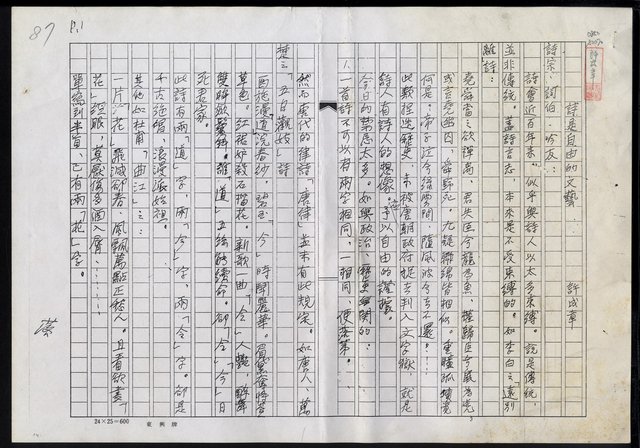 87
P.1
詩是自由的文藝　許成章
詩宗、詞伯、吟友：
詩會近百年來，似乎與詩人以太多束縛。說是傳統，
並非傳統。蓋詩言志，本來是不受束縛的。如李白之「遠別
離詩：
堯舜當之欲禪禹，君失臣兮龍為魚，權歸臣兮鼠為虎
或言堯幽囚，舜野死。九疑聯綿皆相似，重瞳孤墳竟
何是。帝子泣兮綠雲間，隨風波兮去不還……
此類捏造歷史，未被唐朝政府捉去判入文字獄，就是
詩人有詩人的想像。予以自由的
今日的禁忌太多。如與政治、歷史有關的：
1. 一首詩不可以有兩字相同，一相同，便落第。
然而唐代的律詩「唐律」並未有此規定。如唐人、萬
楚之「五日觀妓」詩
西施謾「道」浣春紗，碧玉「今」時鬥麗華。眉黛奪將萱
草色。紅裙妒殺石榴花。新歌一曲「令」人艷，醉舞
雙眸斂鬢斜。誰「道」五絲能續命。卻「令」「今」日
死君家。
此詩有兩「道」字，兩「今」字，兩「令」字。卻是
千古絕唱，浪漫派始祖。
其他如杜甫「曲江」之：
一片「花」飛減卻春，風飄萬點正愁人。且看欲盡「
花」經眼，莫厭傷多酒入脣……
單寫到半首，已有兩「花」字。
24×25=600